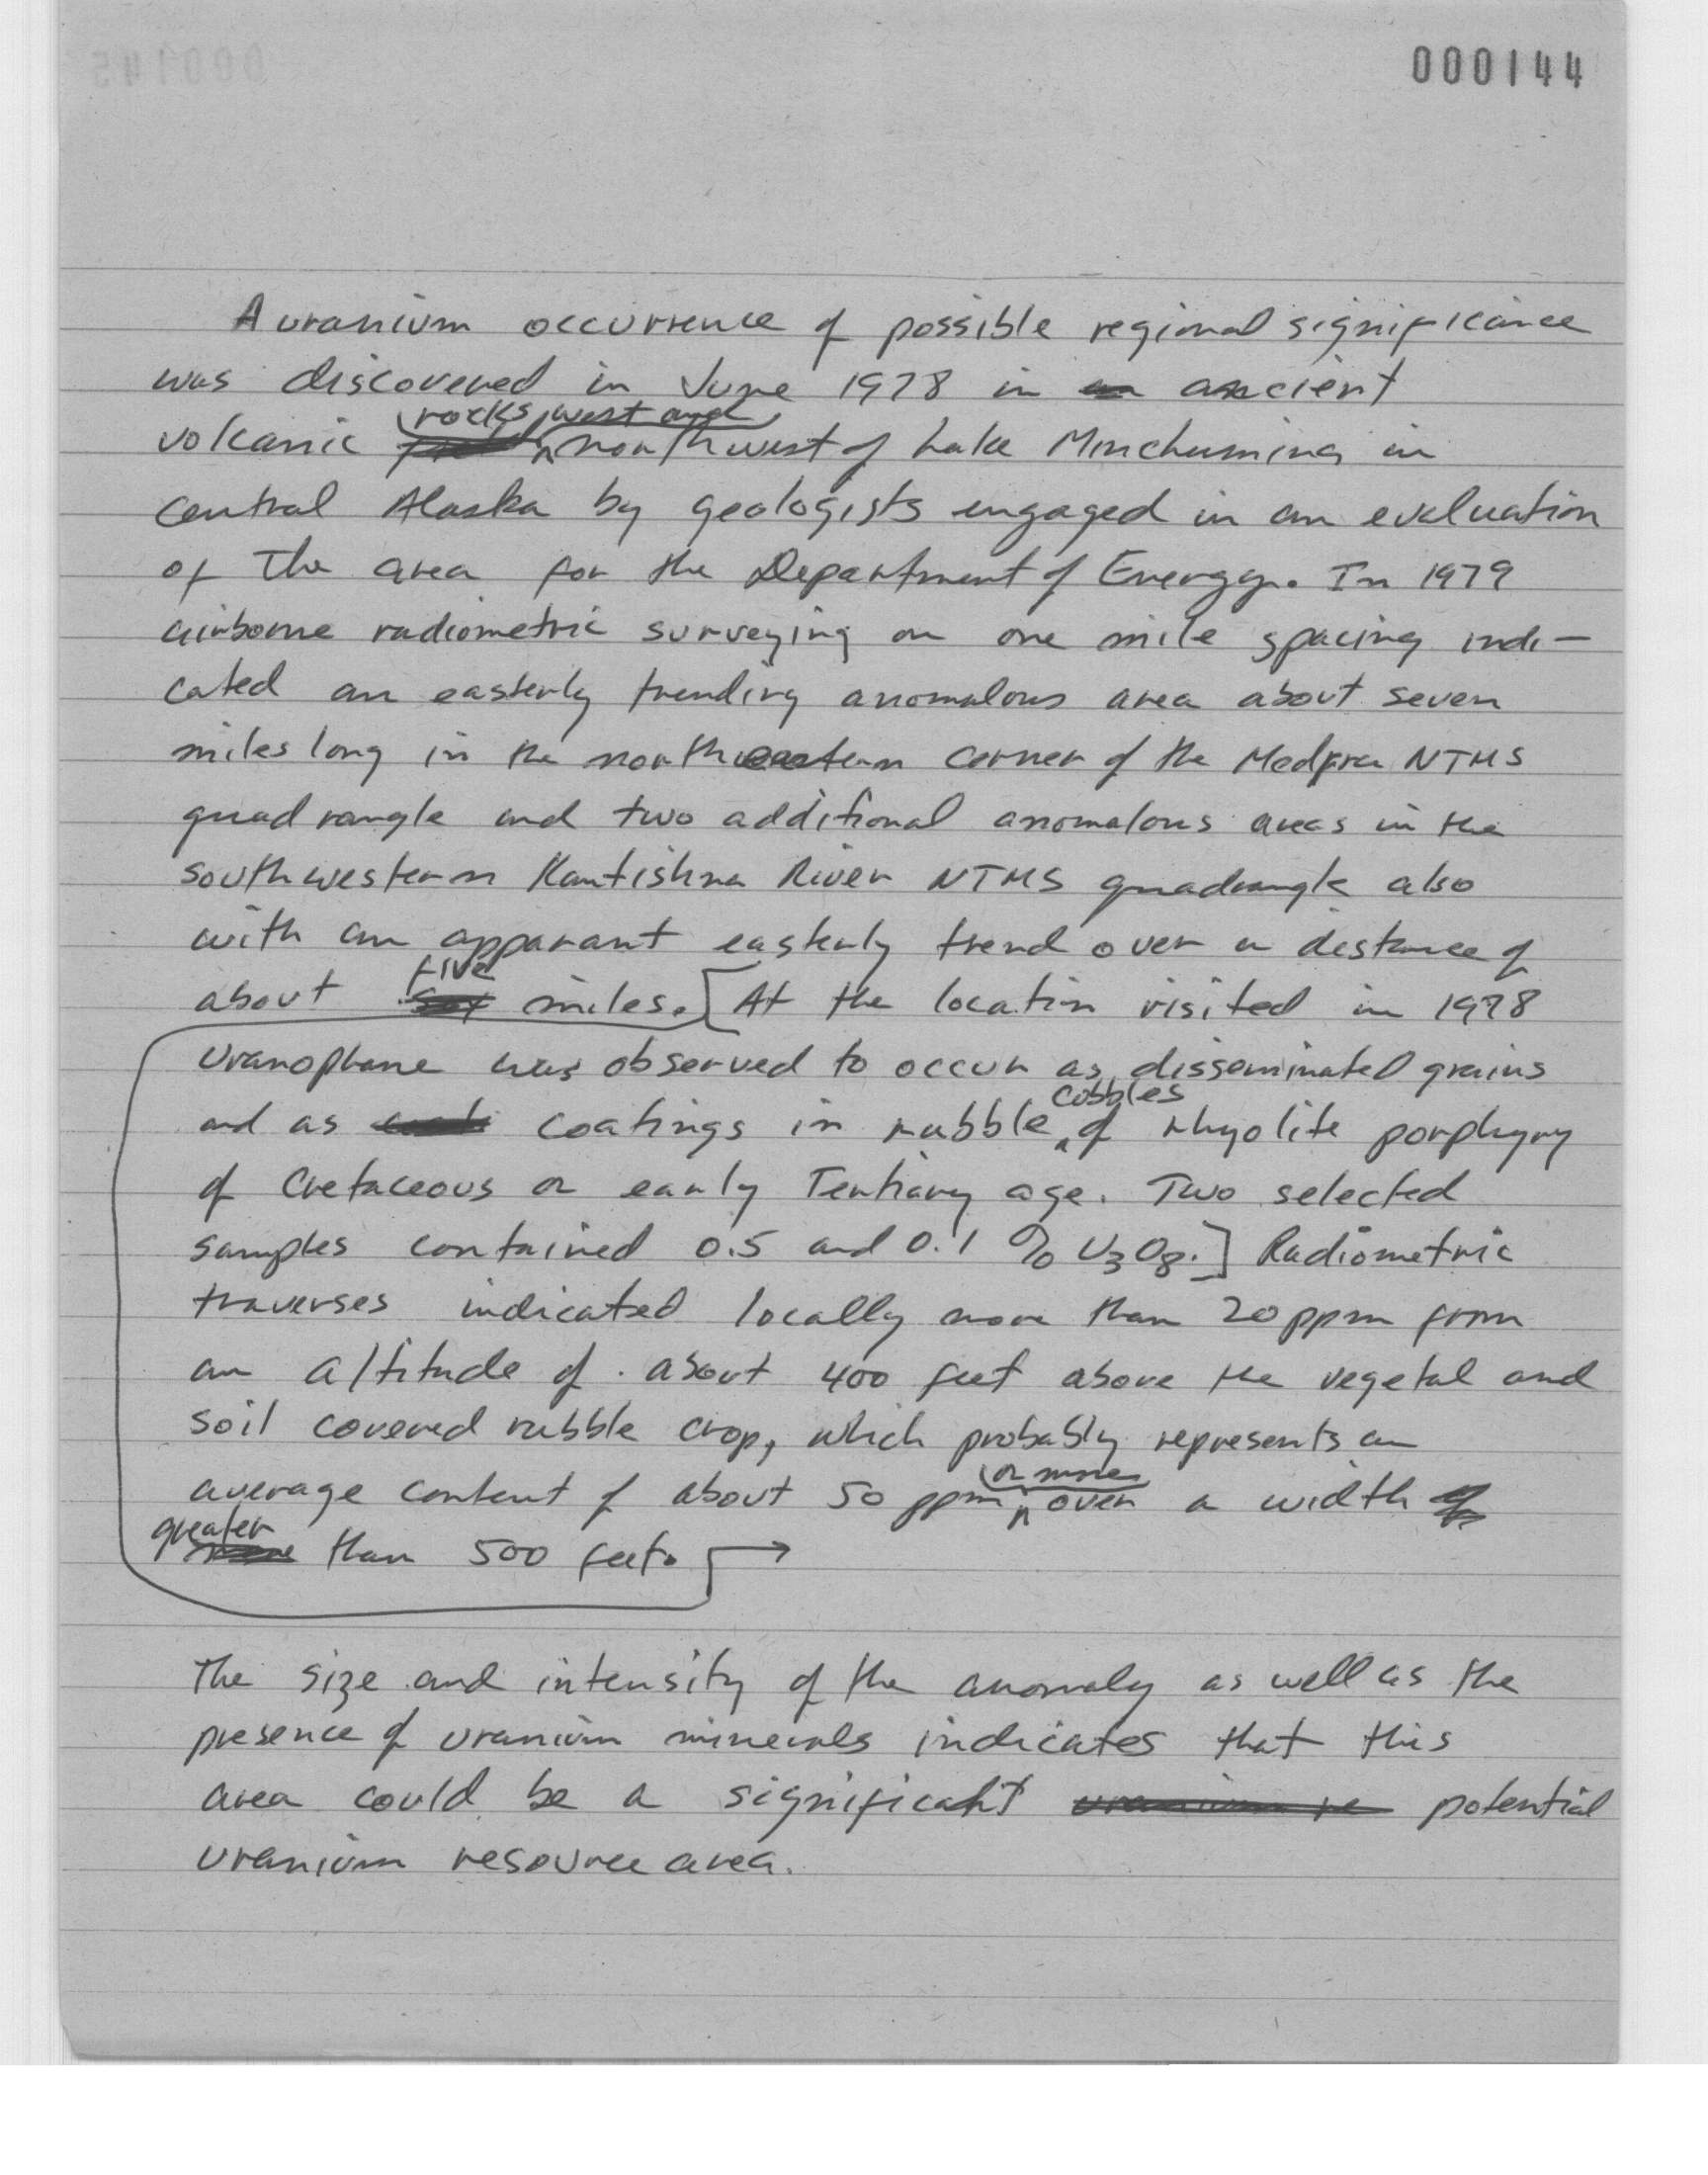 000144
A uranium occurrence of possible regional significance
was discovered in June 1978 in ancient
rocks, west and
volcanic northwest of Lake Minchumina in
central Alaska by geologists engaged in an evaluation
of the area for the Department of Energy. In 1979
airborne radiometric surveying on one mile spacing indi-
cated an easterly trending anomalous area about seven
miles long in the northeastern corner of the Medfra NTMS
quadrangle and two additional anomalous areas in the
southwestern Kantishna River NTMS quadrangle also
with an apparant easterly trend over a distance of
five
about six miles. [At the location visited in 1978
Uranophane was observed to occur as disseminated grains
cobbles
and as coatings in rubble of rhyolite porphyry
of Cretaceous or early Tertiary age. Two selected
samples contained 0.5 and 0.1 % U3O8.] Radiometric
traverses indicated locally more than 20 ppm from
an altitude of about 400 feet above the vegetal and
soil covered rubble crop, which probably represents an
or more
average content of about 50 ppm over a width of
greater
more than 500 feet. →
The size and intensity of the anomaly as well as the
presence of uranium minerals indicates that this
area could be a significant uranium re potential
uranium resource area.